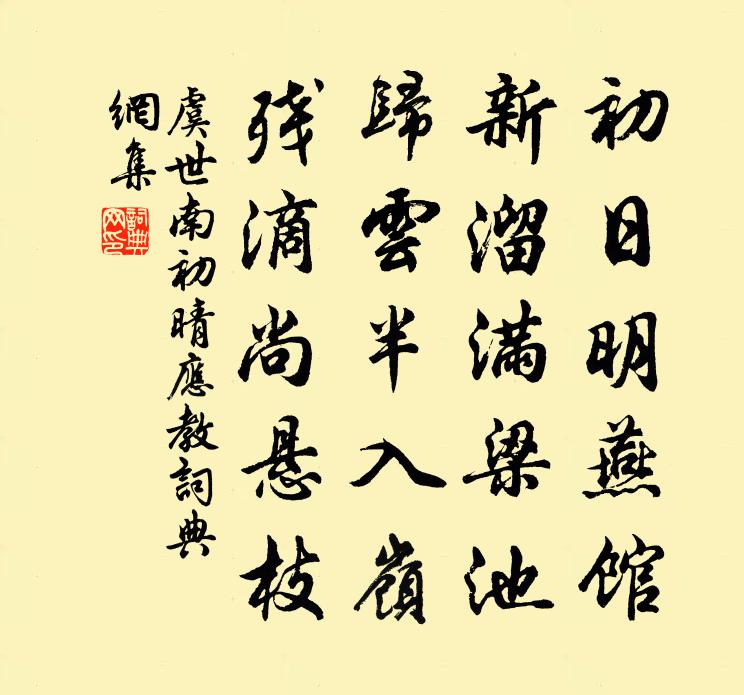 初日明燕館
新溜滿梁池
歸雲半入嶺
残滴尚悬枝
虞世南初晴應教詞典
網集
詞典网印